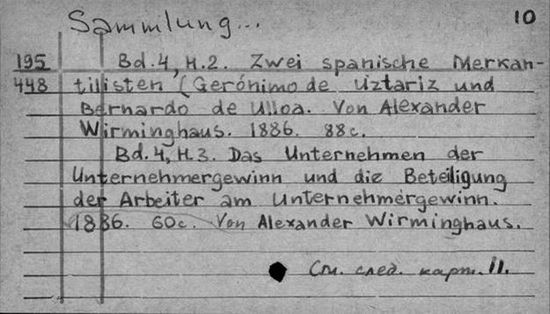 Sammlung... 10
195 Bd.4, H.2. Zwei spanische Merkan-
448 tilisten (Gerónimo de Uztariz und
Bernardo de Ulloa. Von Alexander
Wirminghaus. 1886. 88c.
Bd.4, H.3. Das Unternehmen der
Unternehmergewinn und die Beteiligung
der Arbeiter am Unternehmergewinn.
1886. 60c. Von Alexander Wirminghaus.
См. след. карт. 11.